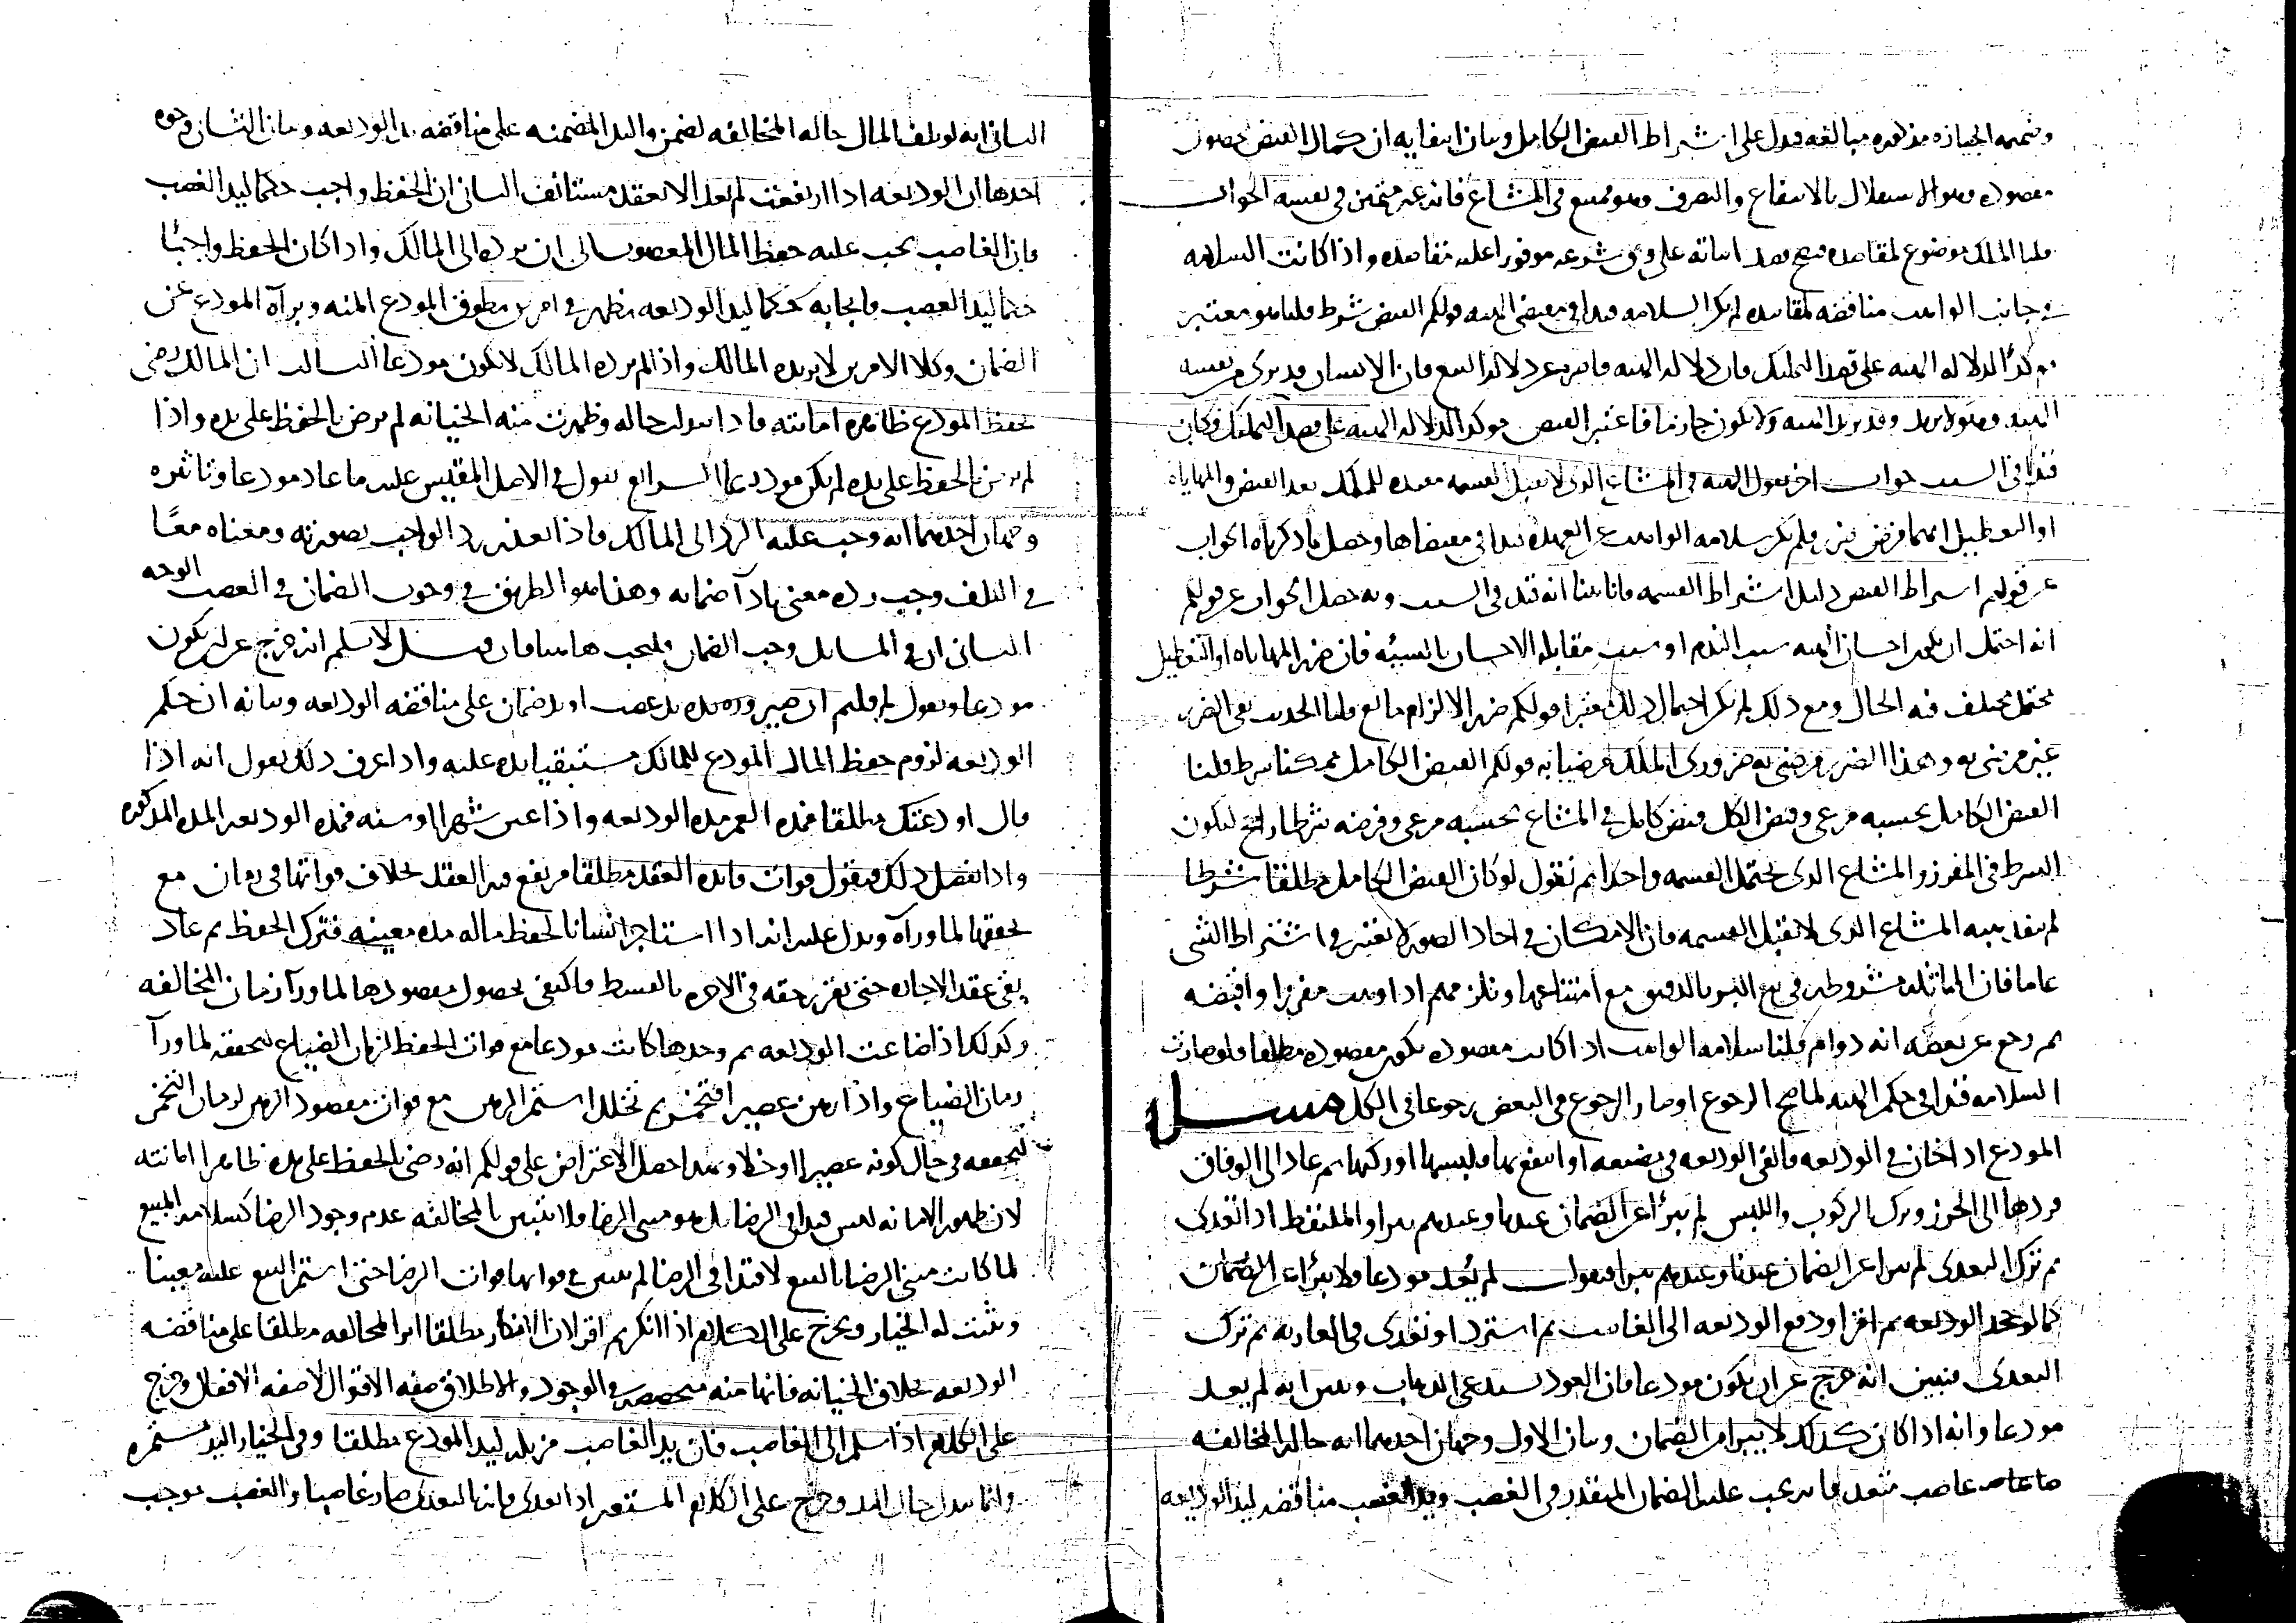 وصمه الحيازه مذكوره مبالغه فدل على اشتراط القبض الكامل وبيان انتفايه ان كمال القبض بحصول
مقصوده وهو الاستقلال بالانتفاع والتصرف وهو ممتنع في المشاع فانه غير متعين في نفسه الجواب
قلنا الملك موضوع لمقاصده اثباته على وفق شرعه موفورا عليه مقاصده واذا كانت السلامه
في جانب الواهب مناقضه لمقاصده لم تكن السلامه قيدا في مقتضى الهبه قولكم القبض شرط قلنا هو معتبر
مؤكدا لدلاله الهبه على قصد التمليك فان دلاله الهبه قاصره عن دلاله البيع فان الانسان قد يرى من نفسه
الهبه وهو لا يريد وقد يريد الهبه ولا يكون جازما فاعتبر القبض مؤكدا لدلاله الهبه على قصد التمليك وكان
قيدا في السبب جواب اخر نقول الهبه في المشاع الذي لا يقبل القسمه مفيده للملك بعد القبض والمهاياه
او التعطيل ايهما فرض ضرر فلم تكن سلامه الواهب عن العهده قيدا في مقتضاها وحصل بما ذكرناه الجواب
عن قولهم اشتراط القبض دليل اشتراط القسمه فانا بينا انه قيد في السبب وبه حصل الجواب عن قولكم
انه احتمل ان يكون احسان الهبه سبب الندم او سبب مقابله الاحسان بالسيئه فان ضرر المهاياه او التعطيل
محتمل يختلف فيه الحال ومع ذلك لم يكن احتمال ذلك معتبرا قولكم ضرر الالزام مانع قلنا الحديث نفى الضرر
غير مرضي به وهذا الضرر مرضي به ضروري الملك مرضيا به قولكم القبض الكامل ممكنا شرط قلنا
القبض الكامل بحسبه مرعي وقبض الكل قبض كامل في المشاع بحسبه مرعي وفرضه شرطا راجح ليكون
الشرط في المفرز والمشاع الذي يحتمل القسمه واحدا ثم نقول لو كان القبض الكامل مطلقا شرطا
لم تنفذ هبه المشاع الذي لا يقبل القسمه فان الامكان في احاد الصور لا يعتبر في اشتراط الشي
عاما فان المماثله مشروطه في بيع البر بالدقيق مع امتناعها ونلزمهم اذا وهب مفرزا واقبضه
ثم رجع عن بعضه انه دوام قلنا سلامه الواهب اذا كانت مقصوده تكون مقصوده مطلقا فلو صارت
السلامه قيدا في حكم الهبه لما صح الرجوع او صار الرجوع في البعض رجوعا في الكل مسله
المودع اذا خان في الوديعه فالقى الوديعه في مضيعه او انتفع بها فلبسها او ركبها ثم عاد الى الوفاق
فردها الى الحرز وترك الركوب واللبس لم يبرأ عن الضمان عندنا وعندهم يبرا والملتقط اذا تعدى
ثم ترك التعدي لم يبرا عن الضمان عندنا وعندهم يبرا فنقول لم يعد مودعا ولا يبرأ عن الضمان
كما لو جحد الوديعه ثم اقر او دفع الوديعه الى الغاصب ثم استرد او تعدى في العاريه ثم ترك
التعدي فنبين انه خرج عن ان يكون مودعا فان العود يستدعي الذهاب ونبين انه لم يعد
مودعا وانه اذا كان كذلك لا يبرا من الضمان وبيان الاول وجهان احدهما انه حاله المخالفه
ضامنا غاصب متعد فانه يجب عليه الضمان المتقدر في الغصب ويد الغصب مناقضه ليد الوديعه
الثاني انه لو تلف المال حاله المخالفه تضمن واليد المضمنه على مناقضه يد الوديعه وبيان الثاني وجوه
احدها ان الوديعه اذا ارتفعت لم تعد الا بعقد مستانف الثاني ان الحفظ واجب حكما ليد الغصب
فان الغاصب يجب عليه حفظ المال المغصوب الى ان يرده الى المالك واذا كان الحفظ واجبا
حكما ليد الغصب فايجابه حكما ليد الوديعه يظهر في امرين تطوق المودع المنه وبرآه المودع عن
الضمان وكلا الامرين لا يريده المالك واذا لم يرده المالك لا يكون مودعا الثالث ان المالك رضي
بحفظ المودع ظاهره امانته فاذا تبدلت حاله وظهرت منه الخيانه لم يرض بالحفظ على يده واذا
لم يرض بالحفظ على يده لم يكن مودعا الرابع نقول في الاصل المقيس عليه ما عاد مودعا وتاثيره
وجهان احدهما انه وجب عليه الرد الى المالك فاذا تعذر رد الواجب بصورته ومعناه معا
في التلف وجب رده معنى بادآ ضمانه وهذا هو الطريق في وجوب الضمان في الغصب الوجه
الثاني ان في المسايل وجب الضمان فليجب هاهنا فان قيل لا نسلم انه خرج عن ان يكون
مودعا ونقول لم قلتم ان صيروره يده يد غصب او يد ضمان على مناقضه الوديعه وبيانه ان حكم
الوديعه لزوم حفظ المال المودع للمالك مستبقيا يده عليه واذا عرف ذلك نقول انه اذا
قال اودعتك مطلقا فمده العمر مده الوديعه واذا عين شهرا او سنه فمده الوديعه المده المذكوره
واذا تفصل ذلك فنقول فوات فايده العقد مطلقا مما يرفع العقد بخلاف فواتها في زمان مع
تحققها لما ورآه ويدل عليه انه اذا استاجر انسانا لحفظ ماله مده معينه فترك الحفظ ثم عاد
بقي عقد الاجاره حتى تقرر حقه في الاجره بالقسط فاكتفى بحصول مقصودها لما ورآ زمان المخالفه
وكذلك اذا ضاعت الوديعه ثم وجدها كانت مودعا مع فوات الحفظ لزمان الضياع لتحققه لما ورآ
زمان الضياع واذا رهن عصيرا فتخمر ثم تخلل استمر الرهن مع فوات مقصود الرهن لزمان التخمر
لتحققه في حال كونه عصيرا او خلا وبهذا حصل الاعتراض على قولكم انه رضي بالحفظ على يده ظاهرا امانته
لان ظهور الامانه ليس قيدا في الرضا بل هو مبنى الرضا ولا يتبين بالمخالفه عدم وجود الرضا كسلامه المبيع
لما كانت مبنى الرضا بالبيع لا قيدا في الرضا لم يتبين في فواتها فوات الرضا حتى استمر البيع عليه معيبا
ويثبت له الخيار ويخرج على الكلام اذا انكر ثم اقر لان الانكار مطلقا امر المخالفه مطلقا على مناقضه
الوديعه بخلاف الخيانه فانها منه مخصصه في الوجود والاطلاق صفه الاقوال لا صفه الافعال وخرج
على الكلام اذا سلم الى الغاصب فان يد الغاصب مزيله ليد المودع مطلقا وفي الخيانه اليد مستمره
وانما تبدل حال اليد وخرج على الكلام المستعير اذا تعدى فانه بالتعدي صار غاصبا والغصب موجب